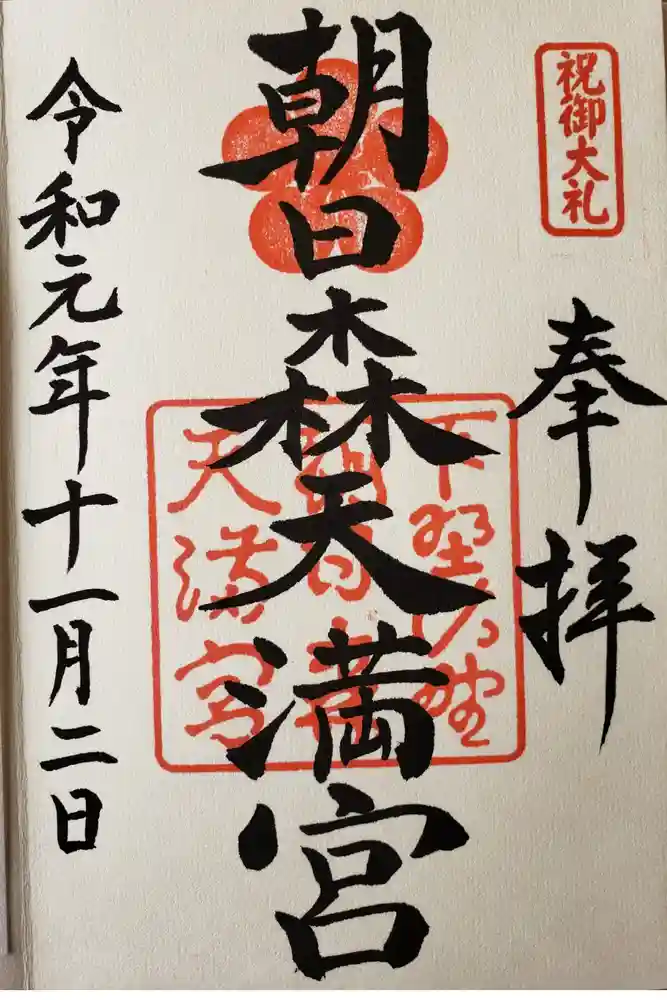 祝御大礼
奉拝
朝日森天満宮
下野佐野
天満宮
令和元年十一月二日